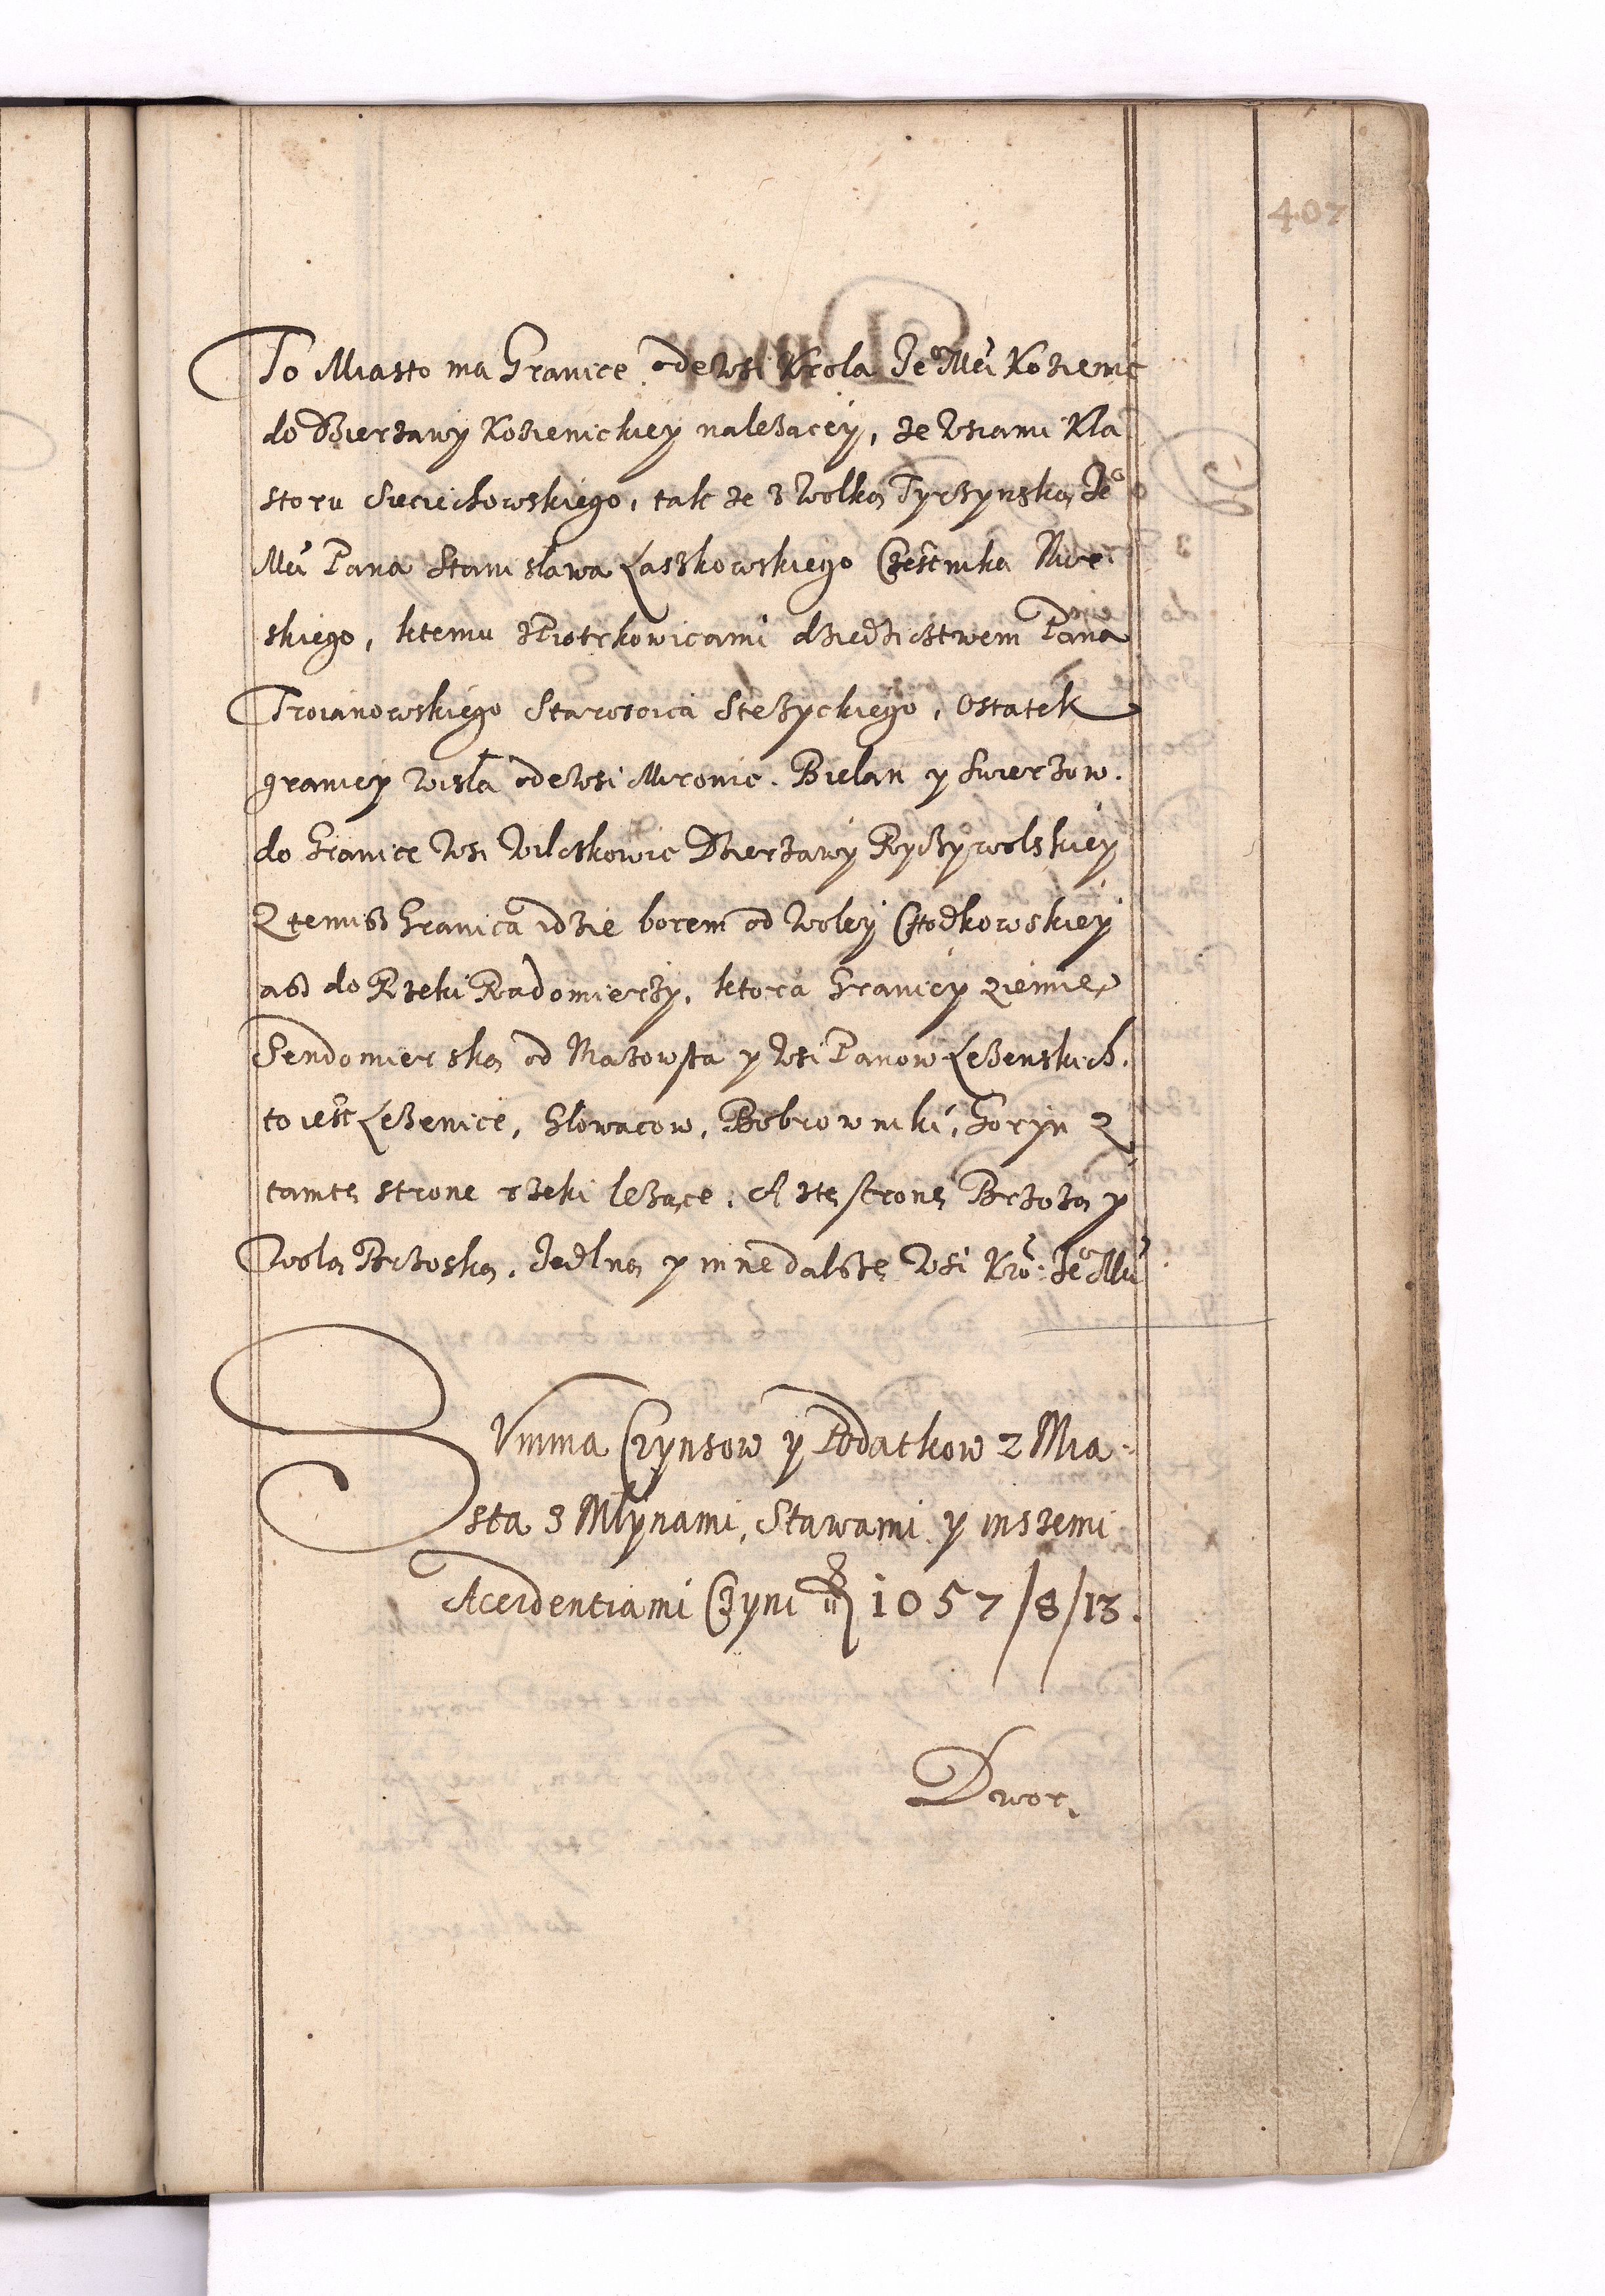 407
To Miasto ma Granice odewsi Krola Jeº Mći Kozienic
do Dzierzawy Kozienickiey należacey, ze wsiami Kla
storu Sieciechowskiego, tak ze z wolką Tyrzynską Jeº
Mći Pana Stanisława Łaszkowskiego Cześnika
skiego, ktemu z Piotrkowicami dziedzictwem Pana
Troianowskiego Starościca Stezyckiego, Ostatek
graniczy Wisła odewsi Mronic. Bielan y Swierzow.
do Granice wsi Wilczkowic Dzierzawy Ryczywolskiey
Ztemisz Granica idzie borem od Woley Chodkowskiey
asz do Rzeki Radomierzy, ktora Graniczy ziemię
Sendomierską od Mazowsza y wsi Panow Leżenskich.
to iest Leżenice, Głowaczow, Bobrowniki, Goryn z
tamtę strone rzeki leżące, A ztę stronę Brzozą y
Wolą Brzoską, Jedlną y inne dalszę wsi Kró: Jeº Mći
SVmma Czynszow y Podatkow z Mia-
sta z Młynami, Stawami y inszemi
Accidentiami Czyni 1057/8/13.
Dwor.